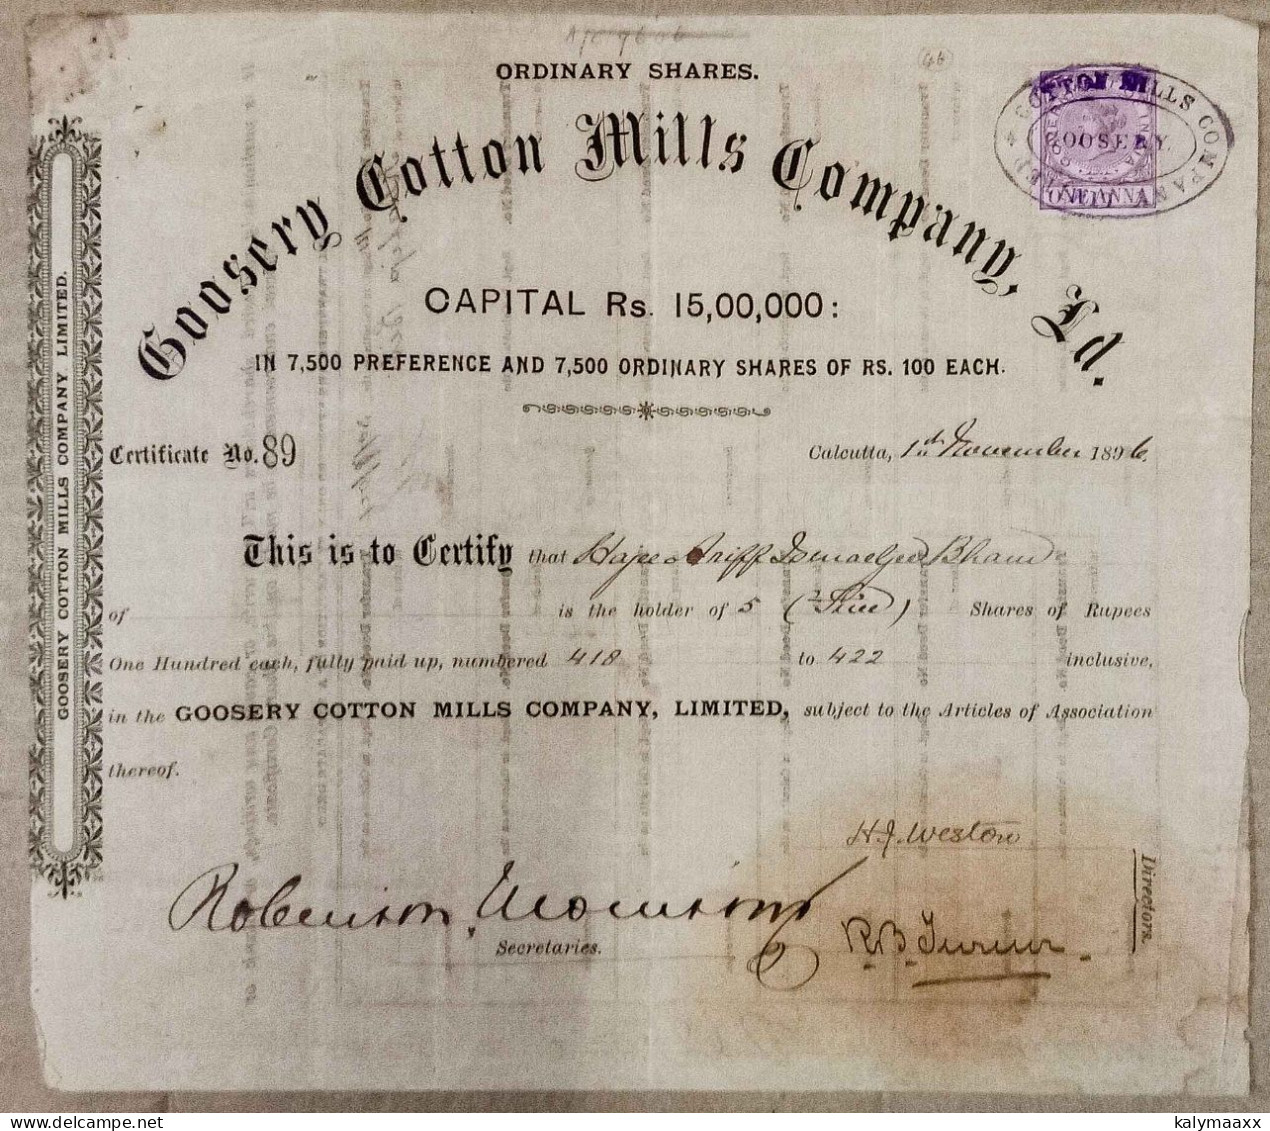 ORDINARY SHARES.
COTTON MILLS COMPANY
GOOSERY.
ONE ANNA
Goosery Cotton Mills Company, Ld.
CAPITAL Rs. 15,00,000:
IN 7,500 PREFERENCE AND 7,500 ORDINARY SHARES OF RS. 100 EACH.
GOOSERY COTTON MILLS COMPANY LIMITED.
Certificate No. 89
Calcutta, 1st November 1896.
This is to Certify that Hajee Ariff Ismaeljee Bham
of is the holder of 5 (Five) Shares of Rupees
One Hundred each, fully paid up, numbered 418 to 422 inclusive,
in the GOOSERY COTTON MILLS COMPANY, LIMITED, subject to the Articles of Association
thereof.
H.J. Weston
Robinson, Morrison
Secretaries.
R.B. Turner
Directors.
kalymaaxx